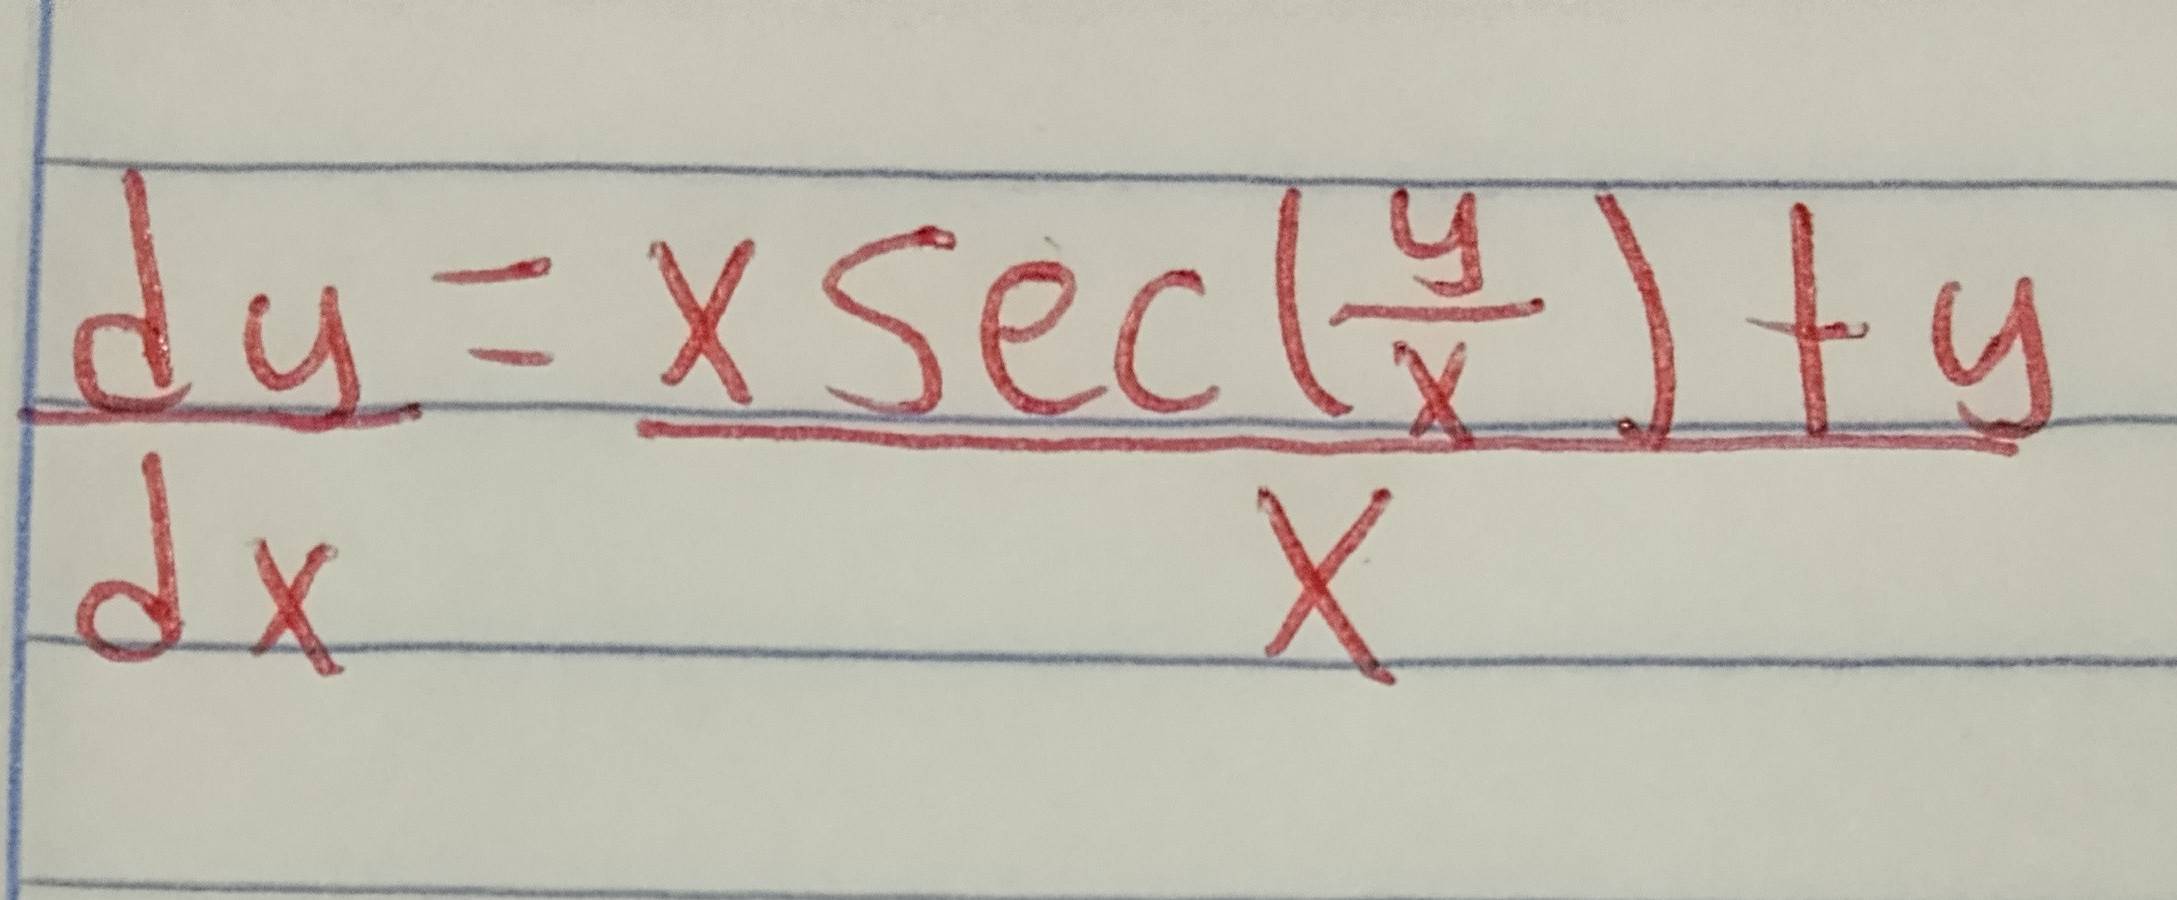 dy/dx = (x sec(y/x) + y)/x